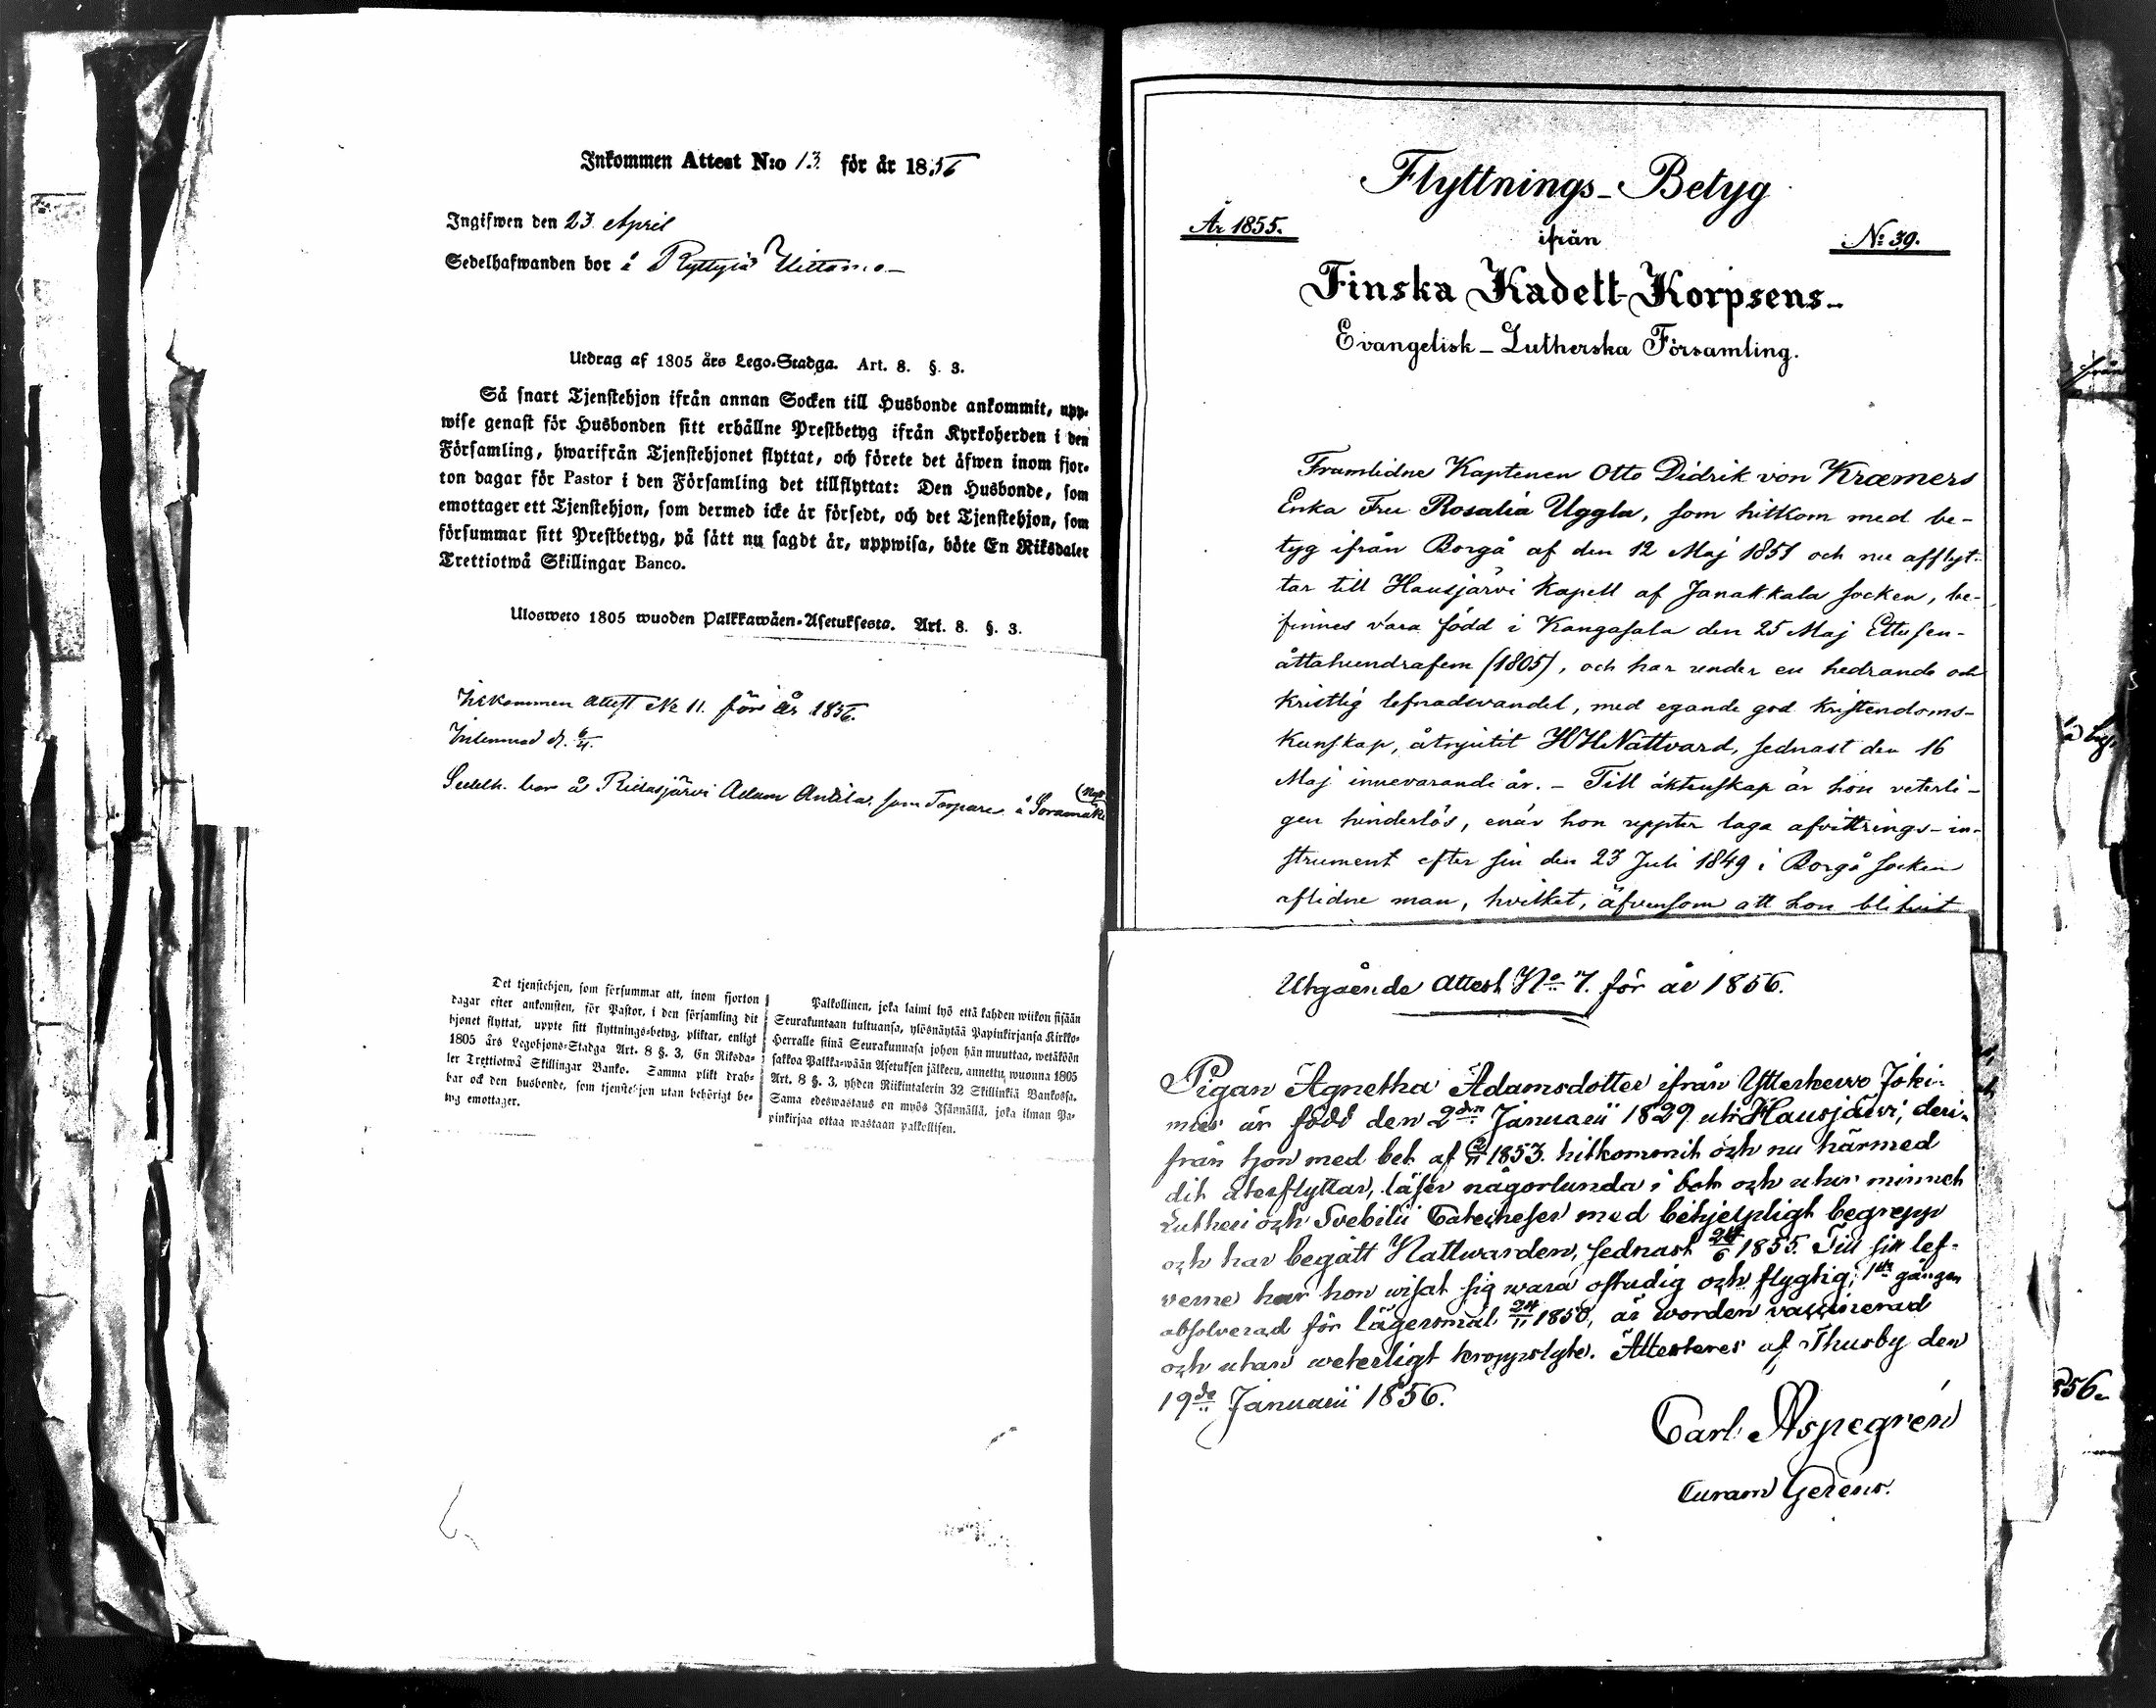 Inkommen Attest N:o 13 för år 1856
Ingifwen den 23 April
Sedelhafwanden bor å Ryttylä
Utdrag af 1805 års Lego-Stadga. Art. 8. §. 3.
Så snart Tjenstehjon ifrån annan Socken till Husbonde ankommit, upp-
wise genast för Husbonden sitt erhållne Prestbetyg ifrån Kyrkoherden i den
Församling, hwarifrån Tjenstehjonet flyttat, och förete det äfwen inom fjor-
ton dagar för Pastor i den Församling det tillflyttat: Den Husbonde, som
emottager ett Tjenstehjon, som dermed icke är försedt, och det Tjenstehjon, som
försummar sitt Prestbetyg, på sätt nu sagdt är, uppwisa, böte En Riksdaler
Trettiotwå Skillingar Banco.
Ulosweto 1805 wuoden Palkkawäen-Asetuksesta. Art. 8. §. 3.
Inkommen attest No 11. för år 1856.
Inlemnad d. 6/4.
Sedelh. bor å Ridasjärvi Adam Anttila, som Torpare å Soramäki
Det tjenstehjon, som försummar att, inom fjorton
dagar efter ankomsten, för Pastor, i den församling dit
hjonet flyttat, uppte sitt flyttnings-betyg, pliktar, enligt
1805 års Legohjons-Stadga Art. 8 §. 3, En Riksda-
ler Trettiotwå Skillingar Banko. Samma plikt drab-
bar ock den husbonde, som tjenstehjon utan behörigt be-
tyg emottager.
Palkollinen, joka laimi lyö että kahden wiikon sisään
Seurakuntaan tultuansa, ylösnäytää Papinkirjansa Kirkko-
Herralle siinä Seurakunnasa johon hän muuttaa, wetäköön
sakkoa Palkka-wään Asetuksen jälkeen, annettu wuonna 1805
Art. 8 §. 3, yhden Riikintalerin 32 Skillinkiä Bankossa.
Sama edeswastaus on myös Isännällä, joka ilman Pa-
pinkirjaa ottaa wastaan palkollisen.
Flyttnings-Betyg
År 1855.
ifrån
No 39.
Finska Kadett-Korpsens
Evangelisk-Lutherska Församling.
Framlidne Kaptenen Otto Didrik von Kræmers
Enka Fru Rosalia Uggla, som hitkom med be-
tyg ifrån Borgå af den 12 Maj 1851 och nu afflyt-
tar till Hausjärvi kapell af Janakkala socken, be-
finnes vara född i Kangasala den 25 Maj Ettusen-
åttahundrafem (1805), och har under en hedrande och
kristlig lefnadsvandel, med egande god kristendoms-
kunskap, åtnjutit H H Nattvard, sednast den 16
Maj innevarande år. - Till äktenskap är hon veterli-
gen hinderlös, enär hon uppter laga afvittrings-in-
strument efter sin den 23 Juli 1849 i Borgå socken
aflidne man, hvilket, äfvensom att hon blifvit
Utgående Attest No 7. för år 1856.
Pigan Agnetha Adamsdotter ifrån Ytterkervo Joki-
mies är född den 2dn Januarii 1829 uti Hausjärvi, deri-
från hon med bet. af 2/11 1853. hitkommit och nu härmed
dit återflyttar, läser någorlunda i bok och utur minnet
Lutheri och Svebilii Catecheser med behjelpligt begrepp
och har begått Nattwarden, sednast 24/6 1855. Till sin lef-
verne har hon wisat sig wara ostadig och flygtig; 1sta gången
absolverad för lägersmål 24/11 1850, är worden vaccinerad
och utan weterligt kroppslyte. Attesteres af Thusby den
19de Januarii 1856.
Carl Aspegrén
Curam Gerens.